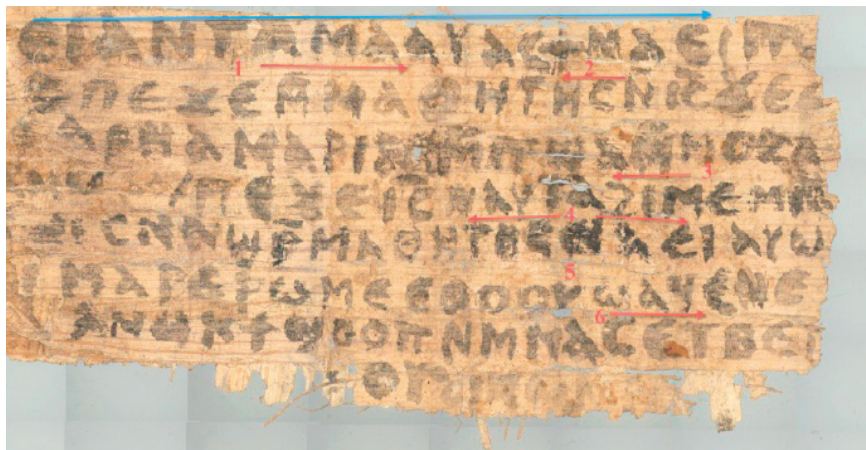 ⲉⲓ ⲁⲛ ⲧⲁⲙⲁⲁⲩ ⲁⲥϯ ⲛⲁⲉⲓ ⲡ
1 2
ⲥ ⲡⲉϫⲉ ⲙⲙⲁⲑⲏⲧⲏⲥ ⲛⲓ̅ⲥ̅ ϫⲉ ⲥ
ⲁⲣⲛⲁ ⲙⲁⲣⲓⲁⲙ ⲙⲡϣⲁ ⲙⲙⲟⲥ ⲁ
3
ⲡⲉϫⲉ ⲓ̅ⲥ̅ ⲛⲁⲩ ⲧⲁϩⲓⲙⲉ ⲙⲛ
4
ⲥⲛⲁϣⲣⲙⲁⲑⲏⲧⲏⲥ ⲛⲁⲉⲓ ⲁⲩⲱ
5
ⲓ ⲙⲁⲣⲉⲣⲱⲙⲉ ⲉⲑⲟⲟⲩ ϣⲁϥⲉ ⲛⲉ
6
ⲁⲛⲟⲕ ϯϣⲟⲟⲡ ⲛⲙⲙⲁⲥ ⲉⲧⲃⲉ ⲡ